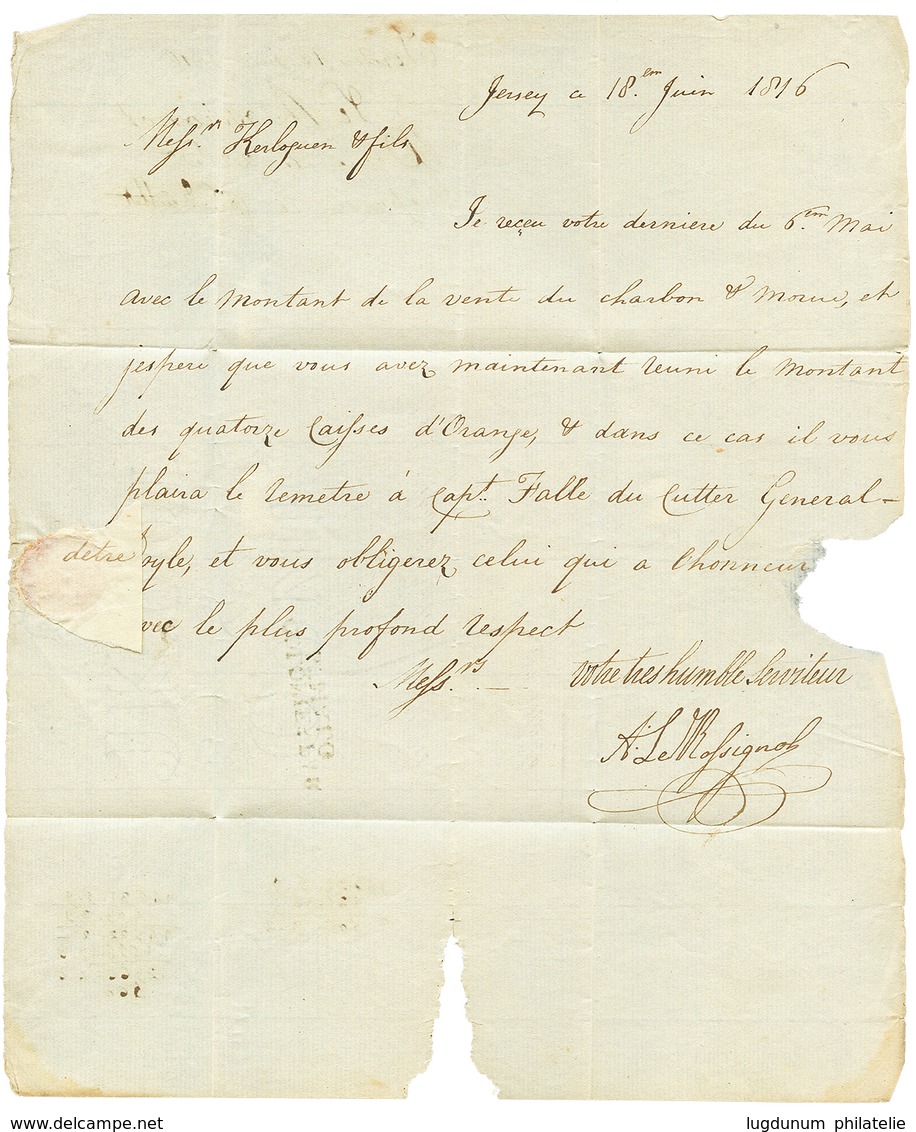 Jersey ce 18.em Juin 1816
Mess.rs Kerloguen & fils
Je reçeu votre derniere du 6.em Mai
avec le montant de la vente du charbon & morue, et
jespere que vous avez maintenant reuni le montant
des quatorze Caisses d'Orange, & dans ce cas il vous
plaira le remetre á Capt. Falle du Cutter General-
detre oyle, et vous obligerez celui qui a lhonneur
vec le plus profond respect
Mess.rs — votre tres humble Serviteur
A. Le Rossignol
www.delcampe.net
lugdunum philatelie